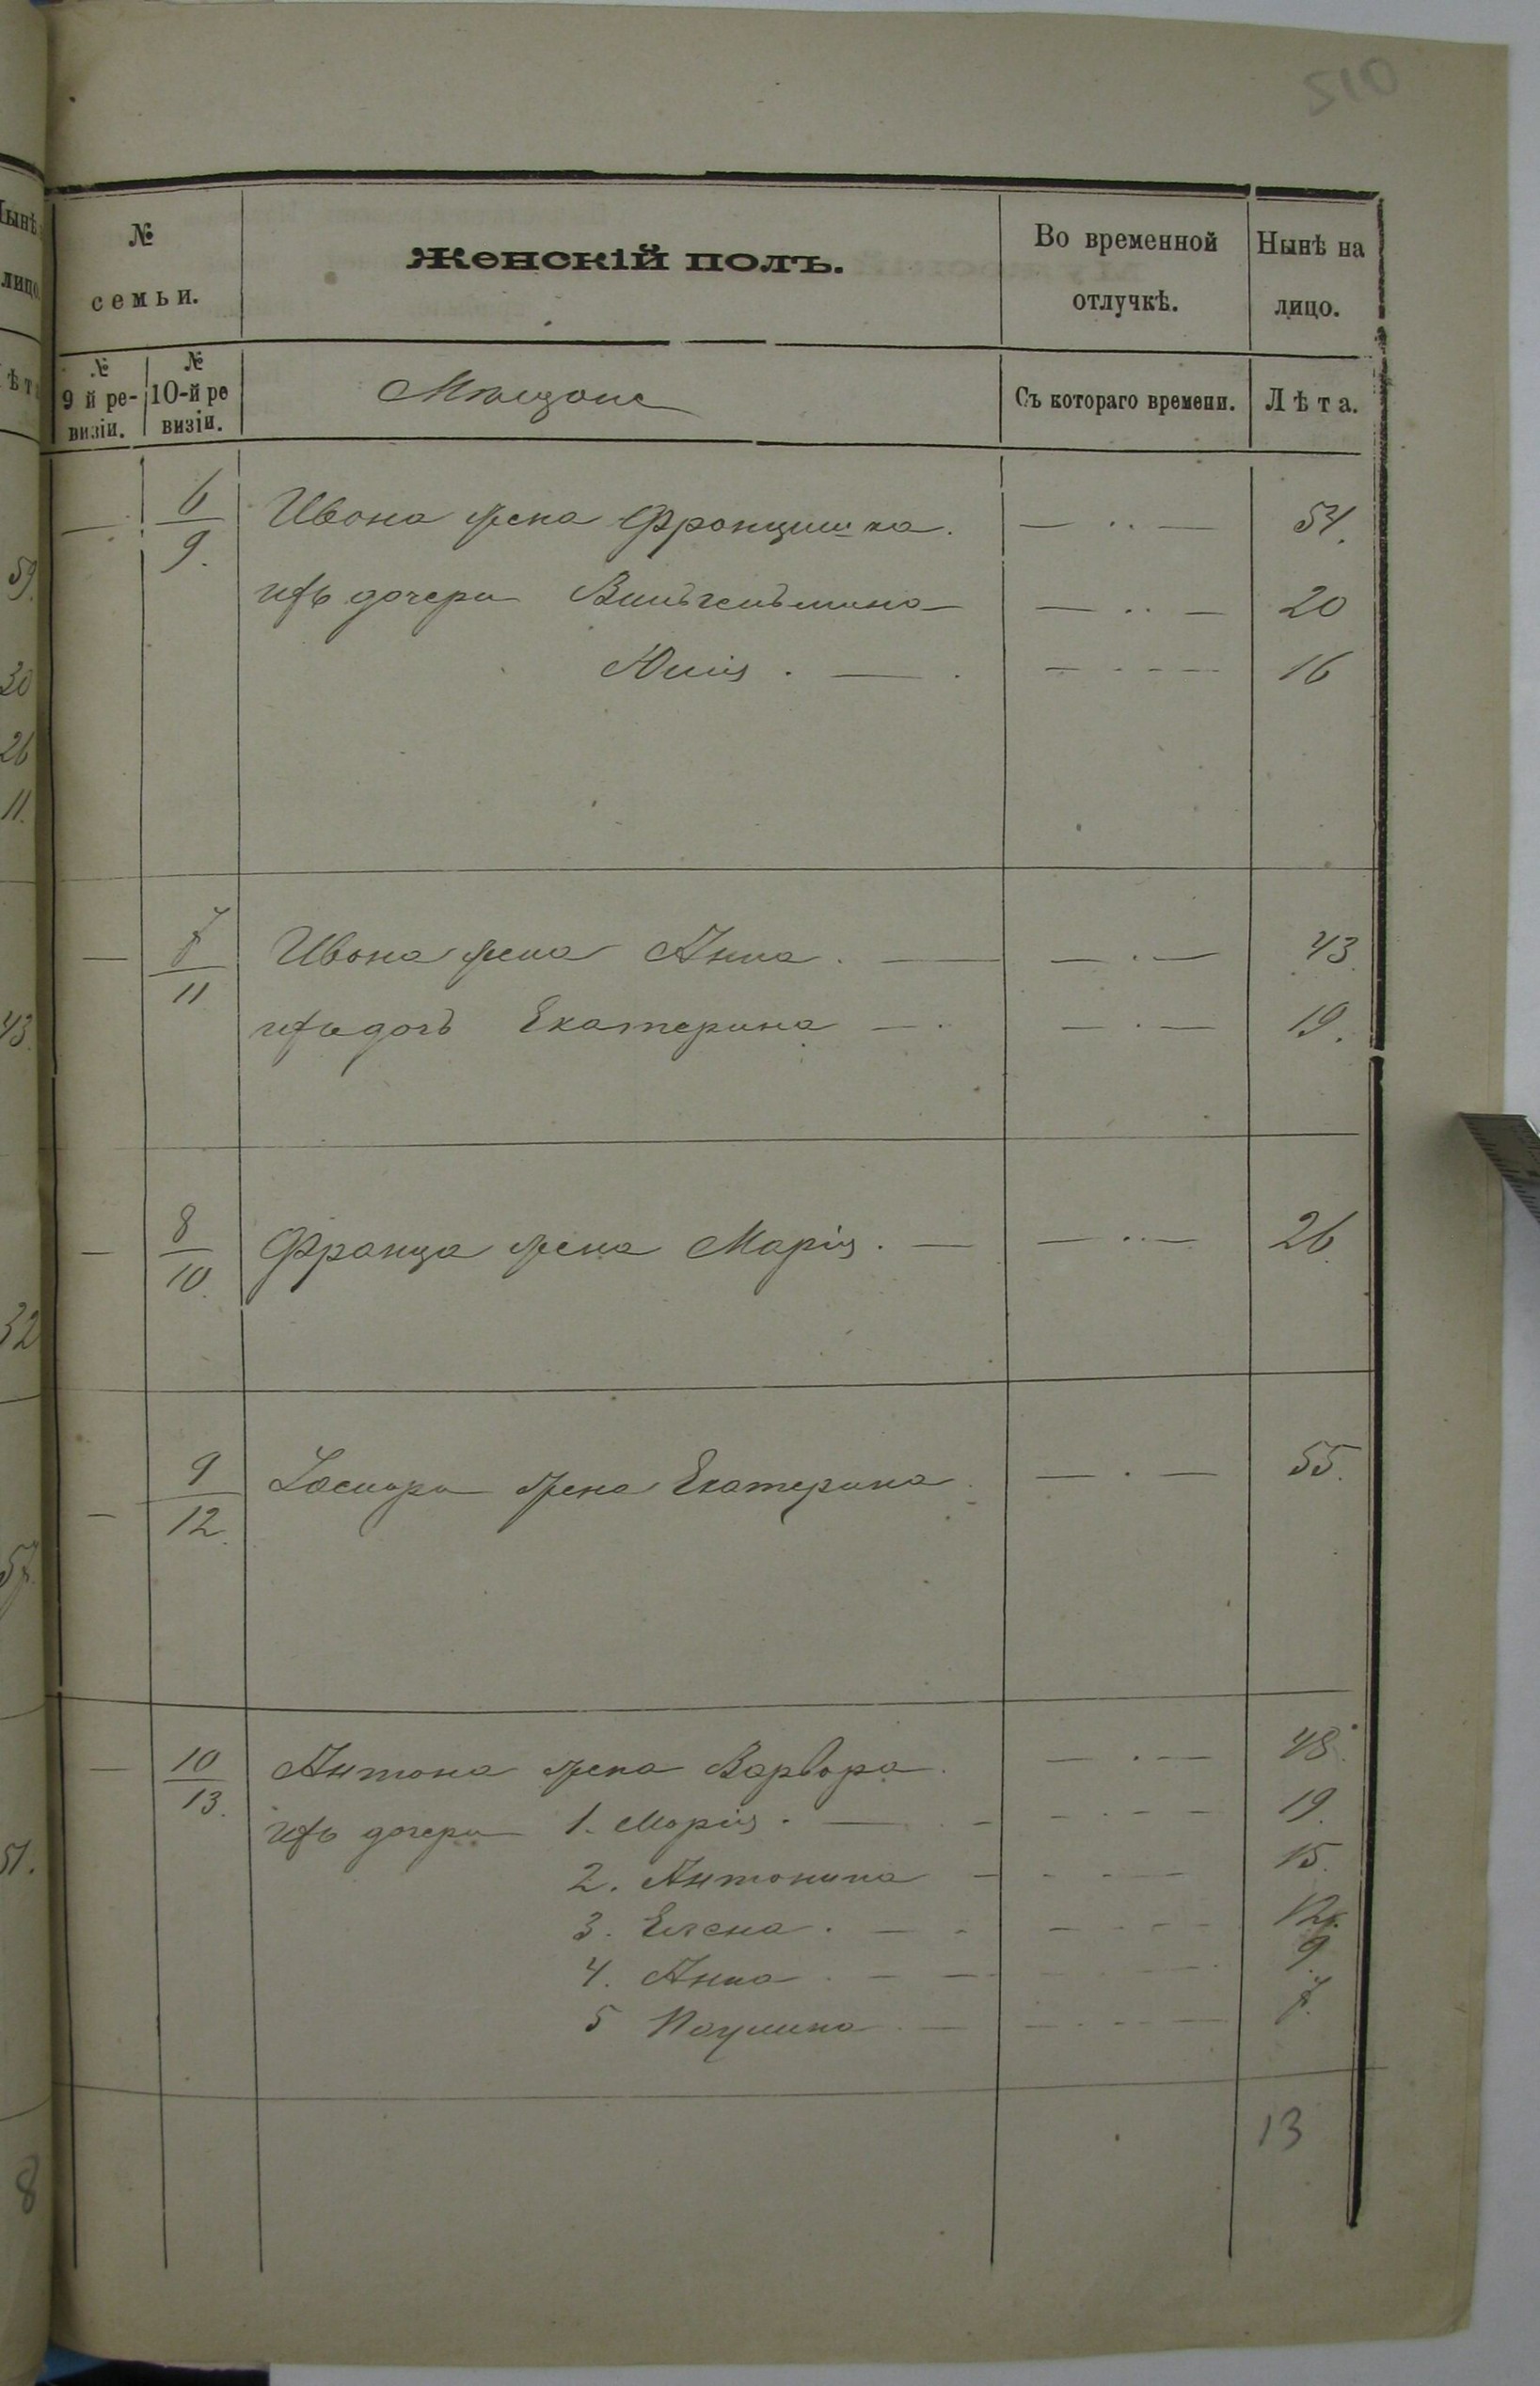 510
№ семьи. Женскій полъ. Во временной отлучкѣ. Нынѣ на лицо.
№ 9 й ре-визіи. № 10-й ре визіи. Мѣщане Съ котораго времени. Лѣта.
— 6/9. Ивана жена Францишка. — .. — 54.
ихъ дочери Вильгельмина — .. — 20
Юлія . — . — - - — 16
— 7/11 Ивана жена Анна . — — . — 43
ихъ дочь Екатерина — . — . — 19.
— 8/10. Франца жена Марія . — — .. — 26
— 9/12. жена Екатерина . — . — 55.
— 10/13. Антона жена Варвара . — . — 48.
ихъ дочери 1. Марія . — - - . - - 19.
2. Антонина — - - — 15.
3. Елена . — - — - - - 12.
4. Анна . — — - - - 9.
5 Паулина . — — . - - — 7.
13
59.
30
26
11.
43.
32
57.
51.
8